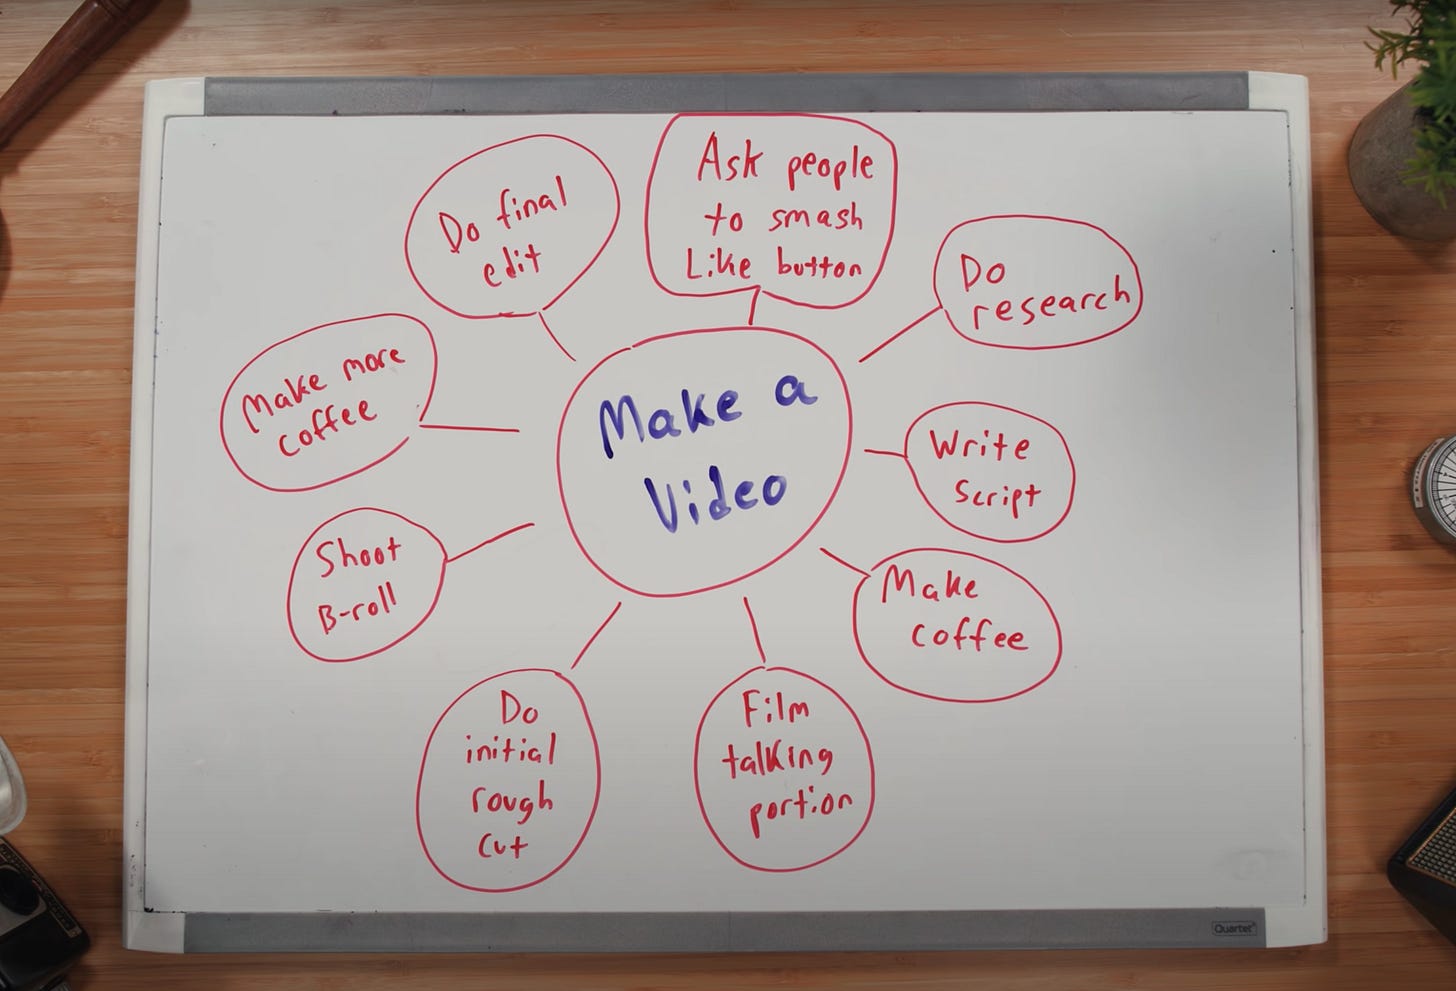 Make a
Video
Ask people
to smash
Like button
Do
research
Write
Script
Make
coffee
Film
talking
portion
Do
initial
rough
cut
Shoot
B-roll
Make more
coffee
Do final
edit
Quartet